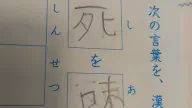 次の言葉を、漢
し
死を
あ
味
しんせつ